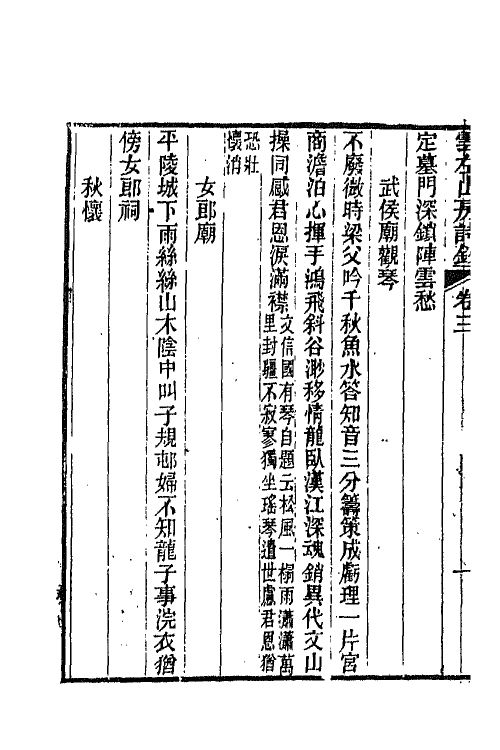 雲左山房詩鈔 卷三
定墓門深鎖陣雲愁
武侯廟觀琴
不廢微時梁父吟千秋魚水答知音三分籌策成虧理一片宮
商澹泊心揮手鴻飛斜谷渺移情龍臥漢江深魂銷異代文山
操同感君恩淚滿襟文信國有琴自題云松風一榻雨瀟瀟萬
里封疆不寂寥獨坐瑤琴遺世慮君恩猶
恐壯
懷消
女郎廟
平陵城下雨絲絲山木陰中叫子規邨婦不知龍子事浣衣猶
傍女郎祠
秋懷